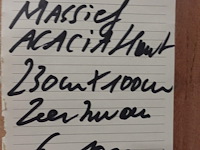 MASSief
ACACIA Hout
230cm x 100cm
Zeer zwaar